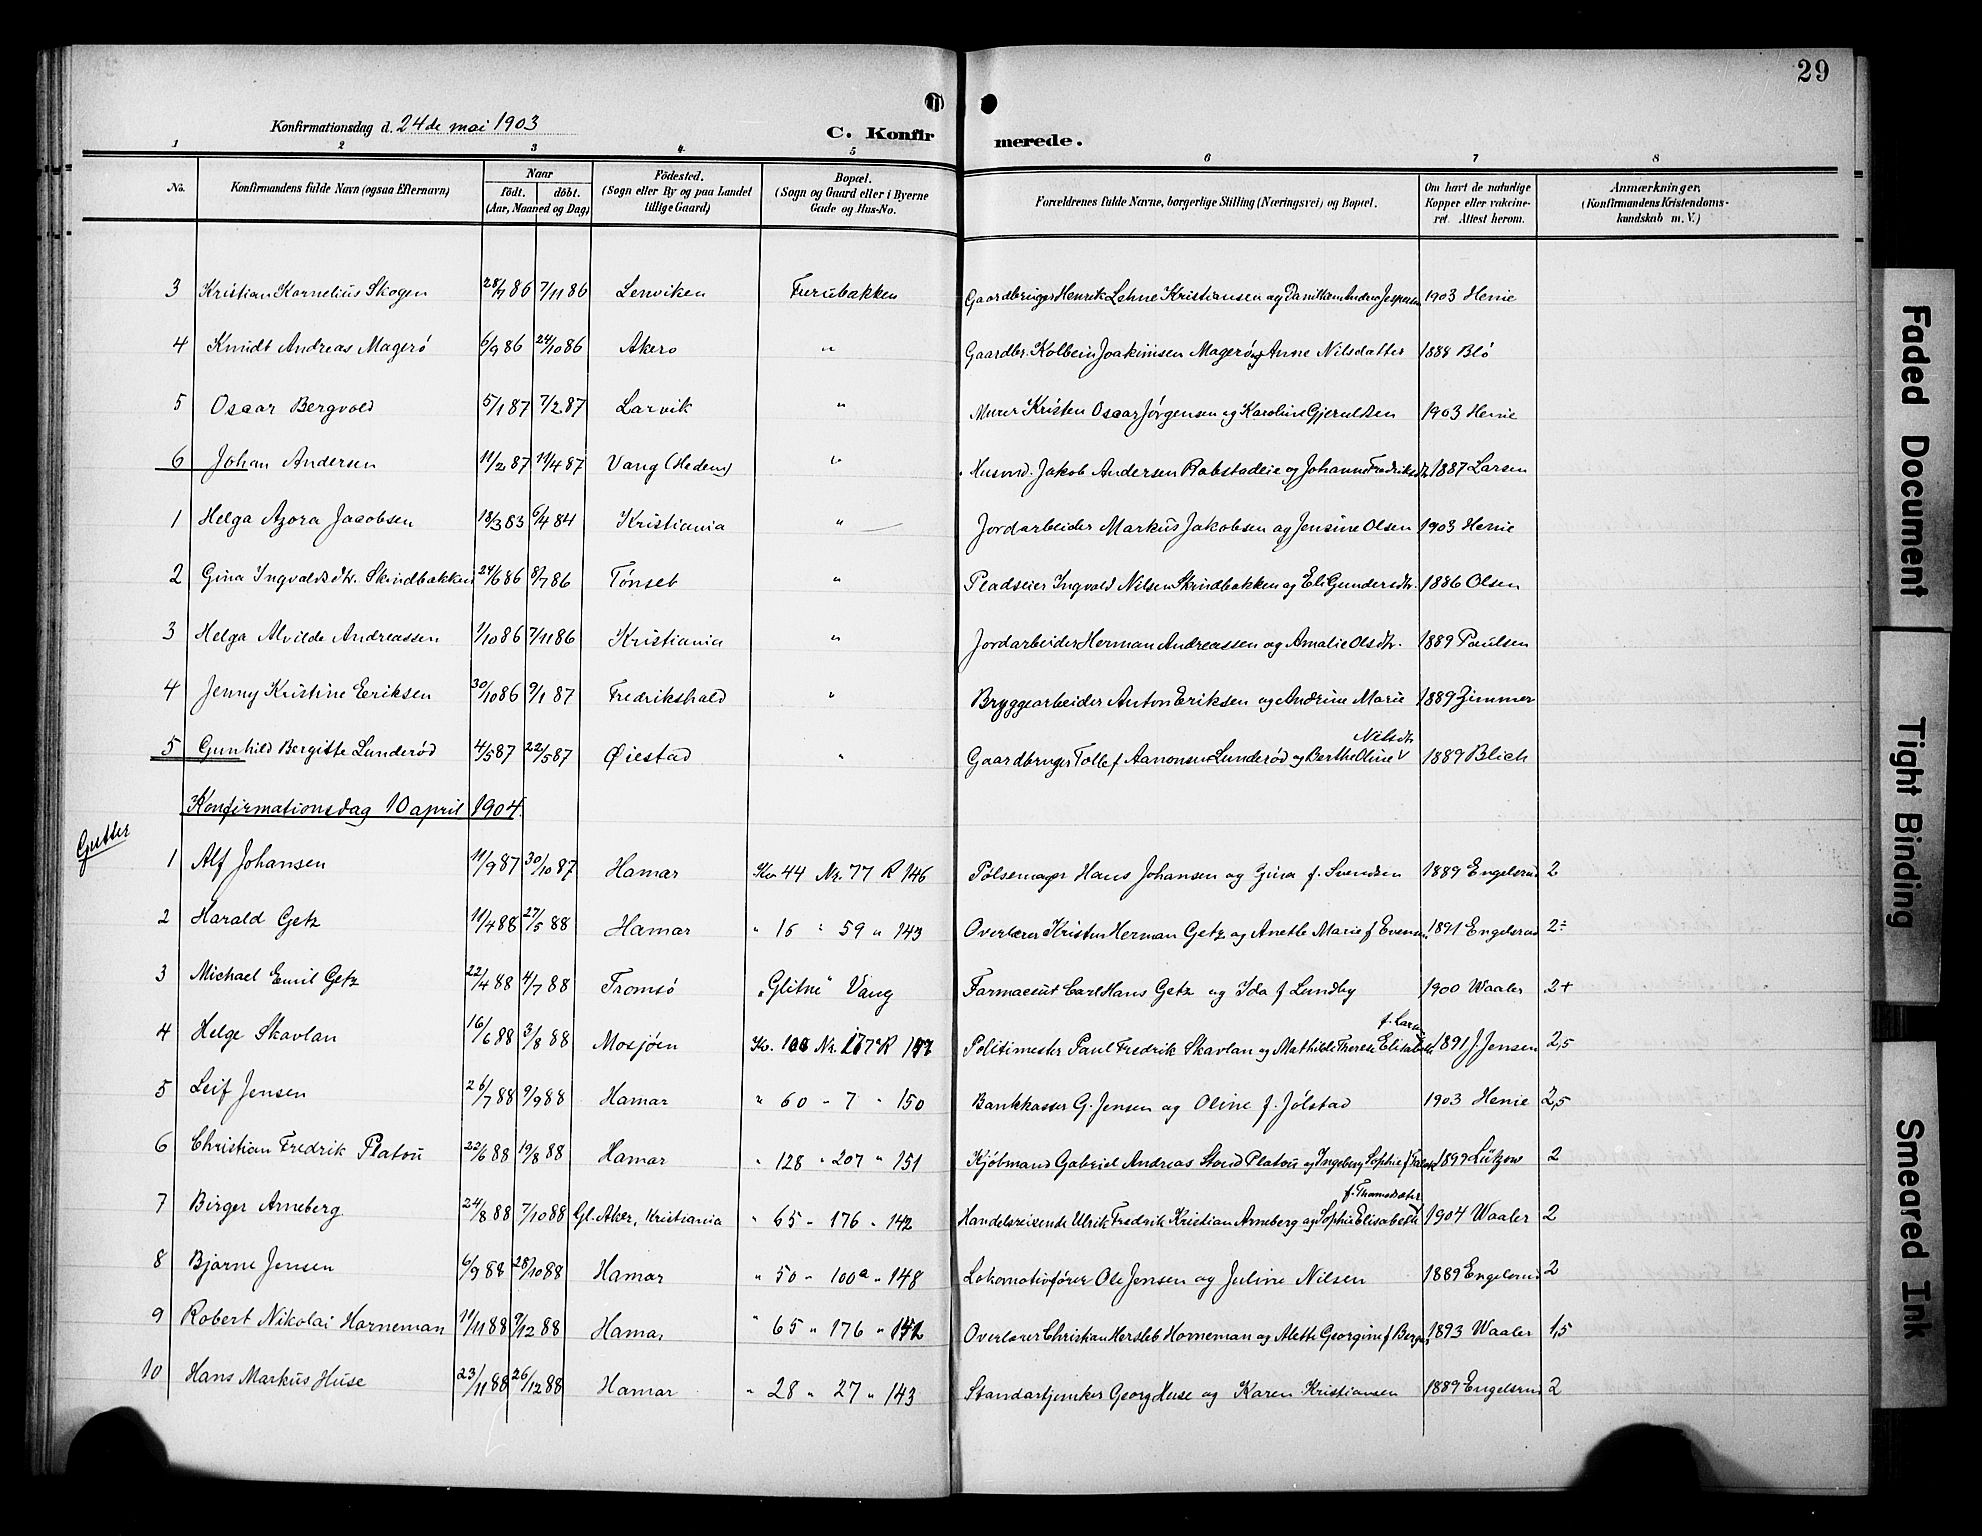 29
Konfirmationsdag d. 24de mai 1903
C. Konfirmerede.
1 2 3 4. 5 6 7 8
No. Konfirmandens fulde Navn (ogsaa Efternavn) Naar født. døbt. (Aar, Maaned og Dag) Fødested. (Sogn eller By og paa Landet tillige Gaard) Bopæl. (Sogn og Gaard eller i Byerne Gade og Hus-No. Forældrenes fulde Navne, borgerlige Stilling (Næringsvei) og Bopæl. Om havt de naturlige Kopper eller vakcineret. Attest herom. Anmærkninger. (Konfirmandens Kristendomskundskab m. V.)
3 Kristian Kornelius Skogen 28/7 86 7/11 86 Lenviken Furubakken Gaardbruger Henrik Lehne Kristiansen og Andrea Jespersen 1903 Henie
4 Knudt Andreas Magerö 6/9 86 24/10 86 Akero " Gaardbr. Kolbein Joakimsen Magerö og Anne Nilsdatter 1888 Blö
5 Oscar Bergvold 5/1 87 7/2 87 Larvik " Murer Kristen Oscar Jörgensen og Karoline Gjeruldsen 1903 Henie
6 Johan Andersen 11/2 87 11/4 87 Vang (Hedem) " Husmd. Jakob Andersen Rabstadeie og Johanne Fredriksdtr. 1887 Larsen
1 Helga Azora Jacobsen 13/3 83 6/4 84 Kristiania " Jordarbeider Markus Jakobsen og Jensine Olsen 1903 Henie
2 Gina Ingvaldsdtr. Skindbakken 24/6 86 8/7 86 Tönset " Pladseier Ingvald Nilsen Skindbakken og Eli Gundersdtr. 1886 Olsen
3 Helga Alvilde Andreassen 1/10 86 7/11 86 Kristiania " Jordarbeider Herman Andreassen og Amalie Olsdtr. 1889 Paulsen
4 Jenny Kristine Eriksen 30/10 86 9/1 87 Fredrikshald " Bryggearbeider Anton Eriksen og Andrine Marie 1889 Zimmer
Nilsdtr
5 Gunhild Bergitte Lunderöd 4/5 87 22/5 87 Øiestad " Gaardbruger Tollef Aanonsen Lunderöd og Berthe Oline V 1889 Blich
Konfirmationsdag 10 april 1904.
Gutter
1 Alf Johansen 11/9 87 30/10 87 Hamar Kv. 44 Nr. 77 R 146 Pölsemager Hans Johansen og Gina f. Svendsen 1889 Engelsrud 2
2 Harald Getz 11/4 88 27/5 88 Hamar " 16 " 59 " 143 Overlærer Kristen Herman Getz og Anette Marie f Evensen 1891 Engelsrud 2÷
3 Michael Emil Getz 22/4 88 4/7 88 Tromsö "Glitne" Vang Farmaceut Carl Hans Getz og Ida f Lundby 1900 Waaler 2+
f. Larsen
4 Helge Skavlan 16/6 88 3/8 88 Mosjöen Kv. Nr. R Politimester Paul Fredrik Skavlan og Mathilde Therese Elisabeth 1891 J. Jensen 2,5
5 Leif Jensen 26/7 88 9/9 88 Hamar " 60 " 7 " 150 Bankkasser G. Jensen og Oline f. Jölstad 1903 Henie 2,5
6 Christian Fredrik Platou 22/6 88 19/8 88 Hamar " 128 " 207 " 151 Kjöbmand Gabriel Andreas Stoud Platou og Ingeborg Sophie f 1899 Lützow 2
f. Thomsdater
7 Birger Arneberg 24/8 88 7/10 88 Gl. Aker, Kristiania " 65 " 176 " 142 Handelsreisende Ulrik Fredrik Kristian Arneberg og Sophie Elisabeth 1904 Waaler 2
8 Bjarne Jensen 6/9 88 28/10 88 Hamar " 50 " 100a " 148 Lokomotivförer Ole Jensen og Juline Nilsen 1889 Engelsrud 2
9 Robert Nikolai Horneman 11/11 88 9/12 88 Hamar " 65 " 176 " 142 Overlærer Christian Hersleb Horneman og Alette Georgine f Berger 1893 Waaler 1,5
10 Hans Markus Huse 23/11 88 26/12 88 Hamar " 28 " 27 " 143 Standartjunker Georg Huse og Karen Kristiansen 1889 Engelsrud 2
Faded Document
Tight Binding
Smeared Ink